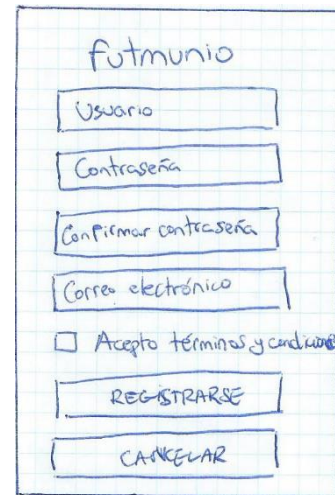 futmunio
Usuario
Contraseña
Confirmar contraseña
Correo electrónico
Acepto términos y condiciones
REGISTRARSE
CANCELAR